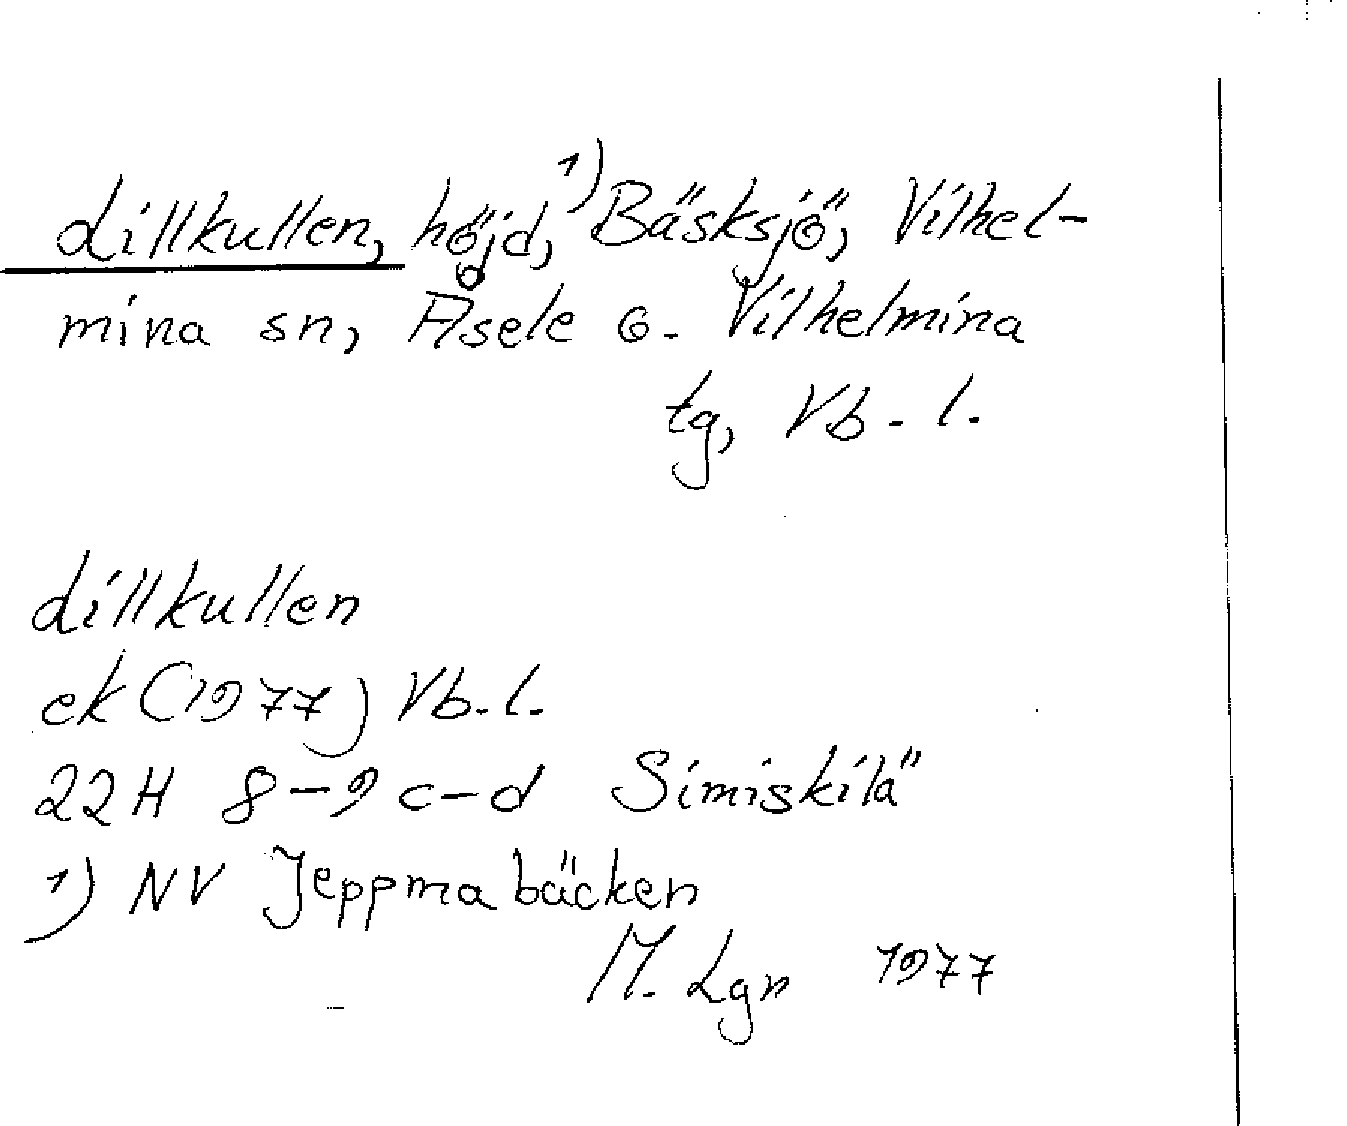 Lillkullen, höjd, 1) Bäsksjö, Vilhel-
mina sn, Åsele o. Vilhelmina
tg, Vb. l.
Lillkullen
ek (1977) Vb. l.
22H 8-9 c-d Simiskilä
1) NV Jeppmabäcken
M. Lgn 1977